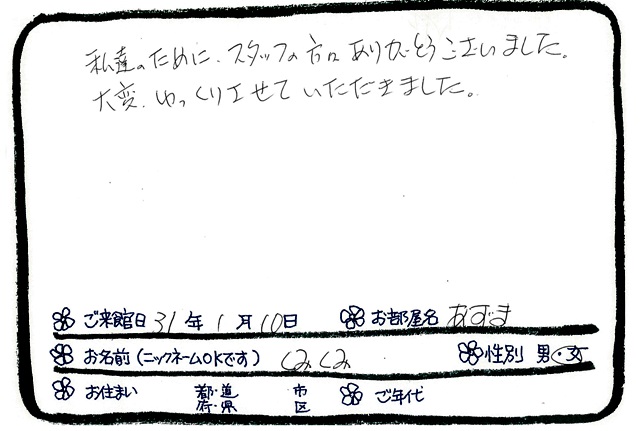 私達のために、スタッフの方々ありがとうございました。
大変、ゆっくりさせていただきました。
ご来館日 31年 1月 10日 お部屋名 あずま
お名前(ニックネームOKです) くみくみ 性別 男・女
お住まい 都・道 府・県 市 区 ご年代